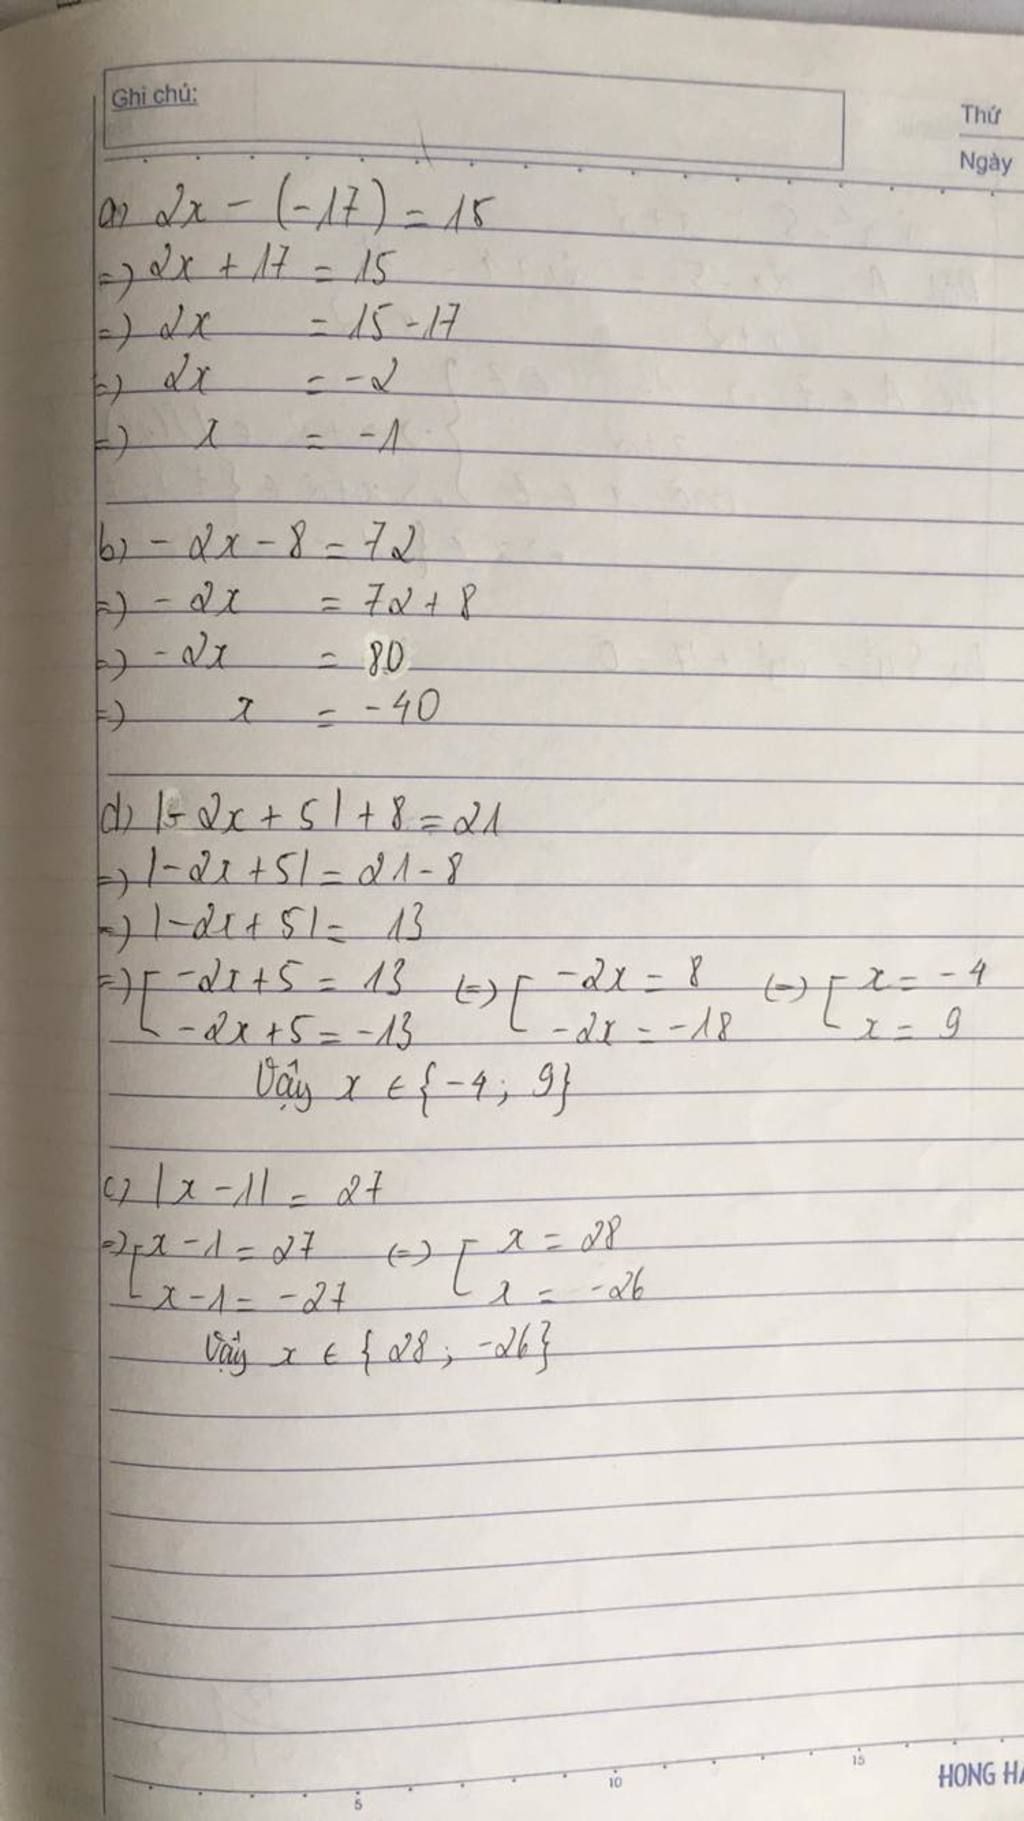 Ghi chú:
Thứ
Ngày
a) 2x - (-17) = 15
=) 2x + 17 = 15
=) 2x = 15 - 17
=) 2x = -2
=) x = -1
b) - 2x - 8 = 72
=) - 2x = 72 + 8
=) - 2x = 80
=) x = -40
d) |- 2x + 5| + 8 = 21
=) |-2x + 5| = 21 - 8
=) |-2x + 5| = 13
=) [ -2x + 5 = 13 (=) [ -2x = 8 (=) [ x = -4
-2x + 5 = -13 -2x = -18 x = 9
Vậy x ∈ {-4; 9}
c) |x - 1| = 27
=) [ x - 1 = 27 (=) [ x = 28
x - 1 = -27 x = -26
Vậy x ∈ {28; -26}
5 10 15
HONG HA